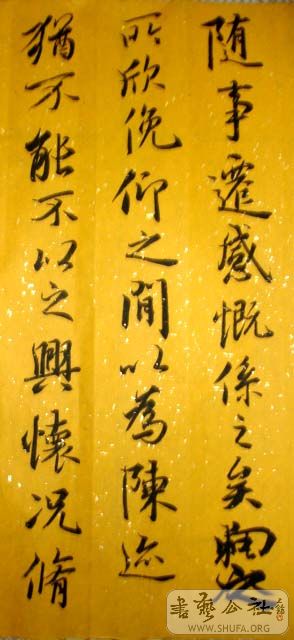 随事遷感慨係之矣向之
所欣俛仰之間以為陳迹
猶不能不以之興懷况脩
書藝公社
WWW.SHUFA.ORG